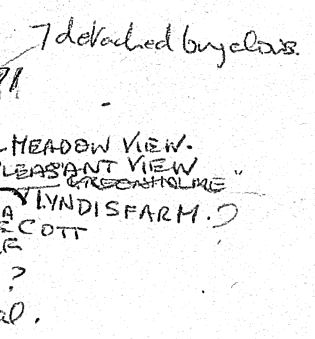 7 detached bungalows.
MEADOW VIEW.
PLEASANT VIEW
GREENHOLME"
LYNDISFARM.?
A
ECOTT
E
?
al.